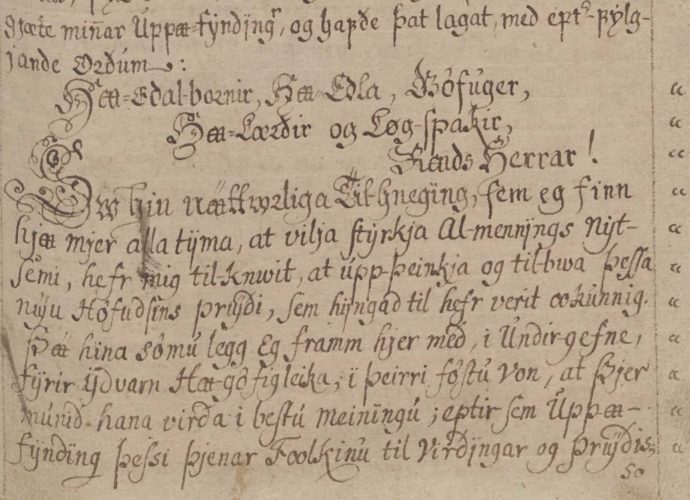 giæte minnar Uppaa-fyndingr, og hafde þat lagat, med eptr-fylg-
jande Ordum:
Haa-Edal-bornir, Haa-Edla, Göfuger,
Haa-Lærdir og Løg-spakir,
Riends Herrar!
Sw hin nättwrliga Til-hneging, sem eg finn
hjaa mjer alla tijma, at vilja styrkja Al-mennings Nyt-
semi, hefr mig til-knwit, at upp-þeinkja og til-bwa þessa
nyju Höfudsins prydi, sem hijngad til hefr verit ookunnig.
Þaa hina sömu legg Eg framm hjer med, i Undir-gefne,
fyrir Ydvarn Haa-göfigleika, i þeirri föstu Von, at Þjer
munid hana virda i bestu meiningu; eptir sem Uppaa-
fynding þessi þjenar Foolkinu til Virdingar og Prydis;
so
“
“
“
“
“
“
“
“
“
“
“